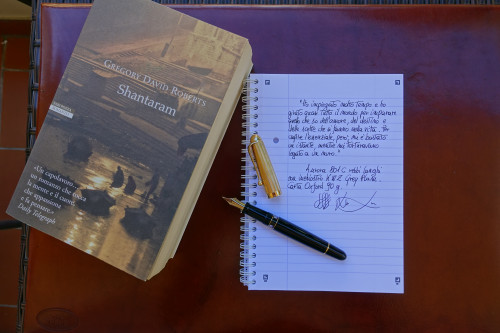 GREGORY DAVID ROBERTS
Shantaram
«Un capolavoro...
un romanzo che tocca
la mente e il cuore,
che appassiona
e fa pensare.»
Daily Telegraph
"Ho impegnato molto tempo e ho
girato quasi tutto il mondo per imparare
quello che so dell'amore, del destino e
delle scelte che si fanno nella vita. Per
capire l'essenziale, però, mi è bastato
un istante, mentre mi torturavano
legato a un muro."
Aurora
Grey Plume
carta Oxford 90 g.